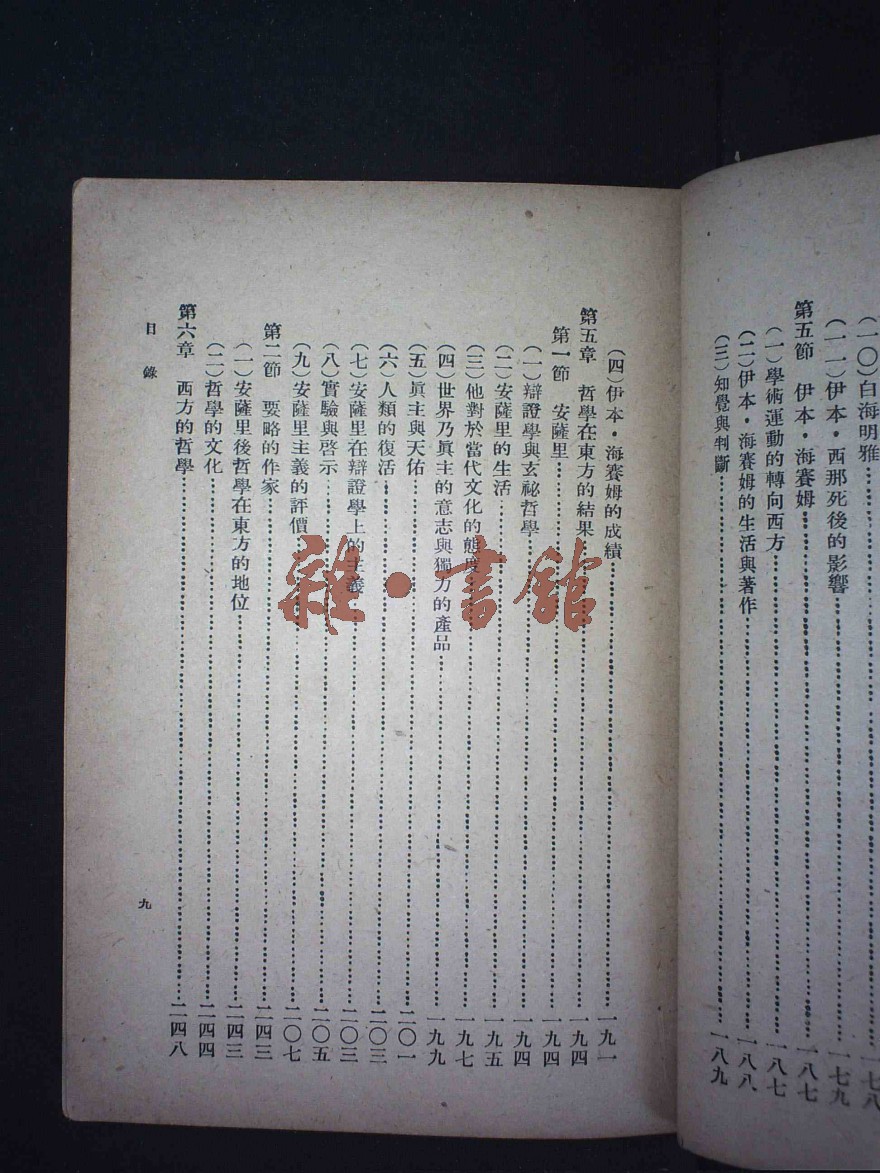 （一〇）白海明雅……一七八
（一一）伊本·西那死後的影響……一七九
第五節　伊本·海賽姆……一八七
（一）學術運動的轉向西方……一八七
（二）伊本·海賽姆的生活與著作……一八八
（三）知覺與判斷……一八九
（四）伊本·海賽姆的成績……一九一
第五章　哲學在東方的結果……一九四
第一節　安薩里……一九四
（一）辯證學與玄祕哲學……一九四
（二）安薩里的生活……一九五
（三）他對於當代文化的態度……一九七
（四）世界乃眞主的意志與獨力的產品……一九九
（五）眞主與天佑……二〇一
（六）人類的復活……二〇三
（七）安薩里在辯證學上的主義……二〇三
（八）實驗與啓示……二〇五
（九）安薩里主義的評價……二〇七
第二節　要略的作家……二四三
（一）安薩里後哲學在東方的地位……二四三
（二）哲學的文化……二四四
第六章　西方的哲學……二四八
目錄
九
雜·書館